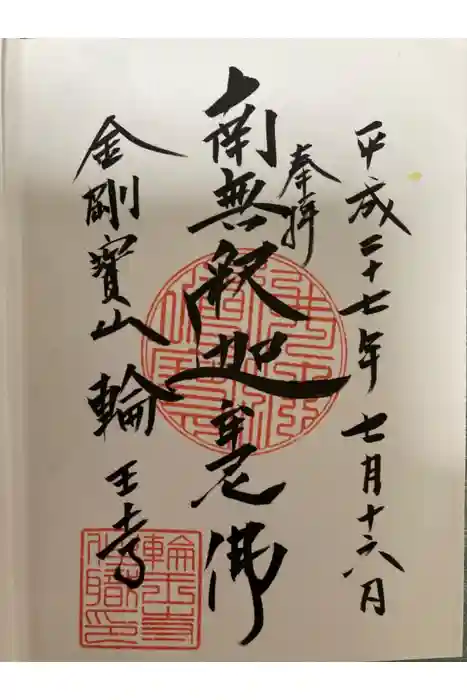 平成二十七年七月十六日
奉拝
南無釈迦牟尼佛
金剛寶山輪王寺
輪王寺
住職印